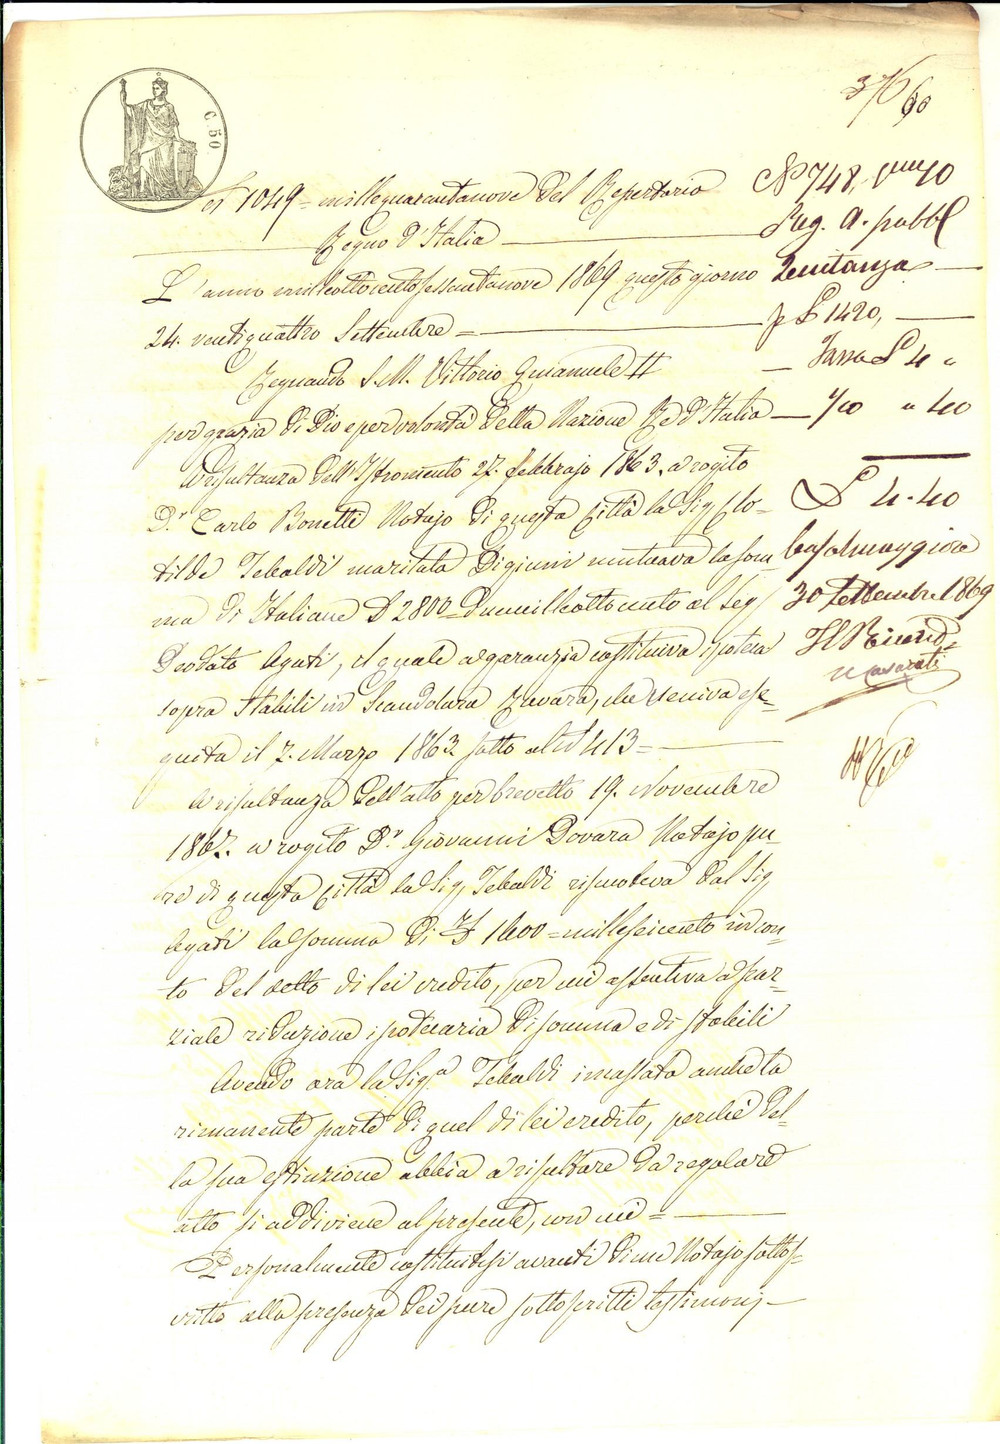 C. 50
376/60
Al 1049 = millequarantanove del Repertorio
Regno d'Italia
L'anno milleottocentosessantanove 1869 questo giorno
24. ventiquattro Settembre =
Regnando S. M. Vittorio Emanuele II
per grazia di Dio e per volontà della Nazione Re d'Italia
A risultanza dell'Istromento 27. febbrajo 1863. a rogito
Dr. Carlo Bonetti Notajo di questa Città la Sig. Clo-
tilde Tebaldi maritata Digiuni mutuava la som-
ma di Italiane £ 2800 = Duemilleottocento al Sig.
Deodato Agati, il quale a garanzia costituiva ipoteca
sopra stabili in Scandolara Ravara, che veniva ese-
guita il 7. Marzo 1863. sotto al N. 413 =
A risultanza dell'atto per brevetto 19. Novembre
1867. a rogito Dr. Giovanni Dovara Notajo pu-
re di questa Città la Sig. Tebaldi riscuoteva dal Sig.
Agati la somma di £ 1600 = milleseicento in con-
to del detto di lei credito, per cui assentiva a par-
ziale riduzione ipotecaria di somma e di stabili
Avendo ora la Sig.a Tebaldi incassata anche la
rimanente parte di quel di lei credito, perchè del-
la sua estinzione abbia a risultare da regolare
atto si addiviene al presente, con cui =
Personalmente costituitisi avanti di me Notajo sottos-
critto alla presenza dei pure sottoscritti testimonj
N° 748
Reg. A. pubbl
Quitanza
p £ 1420,
Tassa £ 4 "
1/10 " 40
£ 4. 40
Casalmaggiore
30 Settembre 1869
Il Ricevid.